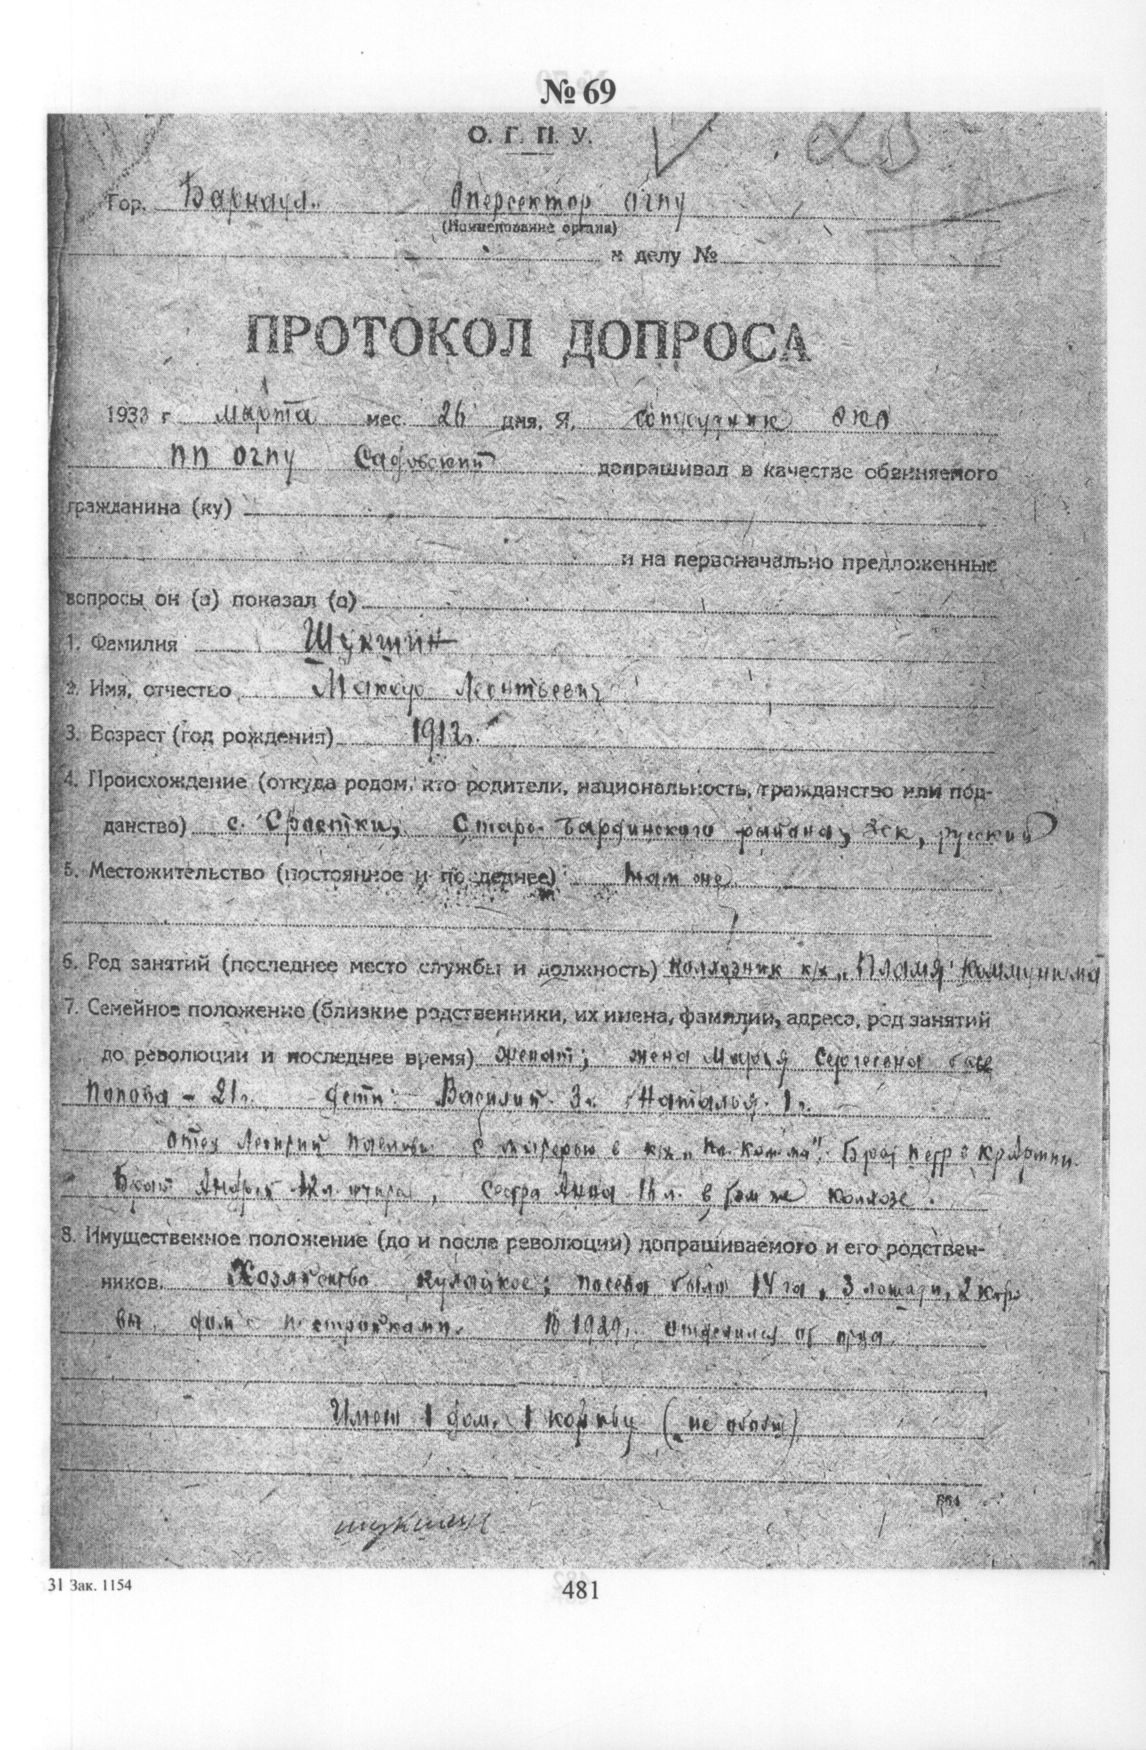 № 69
О. Г. П. У.
Гор. Барнаул. Оперсектор ОГПУ
(Наименование органа)
к делу №
ПРОТОКОЛ ДОПРОСА
1933 г марта мес. 26 дня. Я, сотрудник ЭКО
ПП ОГПУ Садовский допрашивал в качестве обвиняемого
гражданина (ку)
и на первоначально предложенные
вопросы он (а) показал (а)
1. Фамилия Шукшин
2. Имя, отчество Макар Леонтьевич
3. Возраст (год рождения) 1912 г.
4. Происхождение (откуда родом, кто родители, национальность, гражданство или под-
данство) с. Сростки, Старо-Бардинского района, ЗСК, русский
5. Местожительство (постоянное и последнее) там же
6. Род занятий (последнее место службы и должность) колхозник к/х „Пламя Коммунизма
7. Семейное положение (близкие родственники, их имена, фамилии, адреса, род занятий
до революции и последнее время) Женат; жена Марья Сергеевна быв
Попова - 21 г. дети: Василий 3 г. Наталья 1 г.
отец Леонтий Павлович с матерью в к/х „Пл. Ком-ма". Брат Петр в Кр Армии.
Брат Андрей 12 л. , сестра Анна 16 л. в том же колхозе.
8. Имущественное положение (до и после революции) допрашиваемого и его родствен-
ников. Хозяйство кулацкое; посева было 14 га, 3 лошади, 2 коро
вы, дом с постройками. В 1929 г. отделился от отца.
Имел 1 дом, 1 корову (не облож)
шукшин
31 Зак. 1154
481